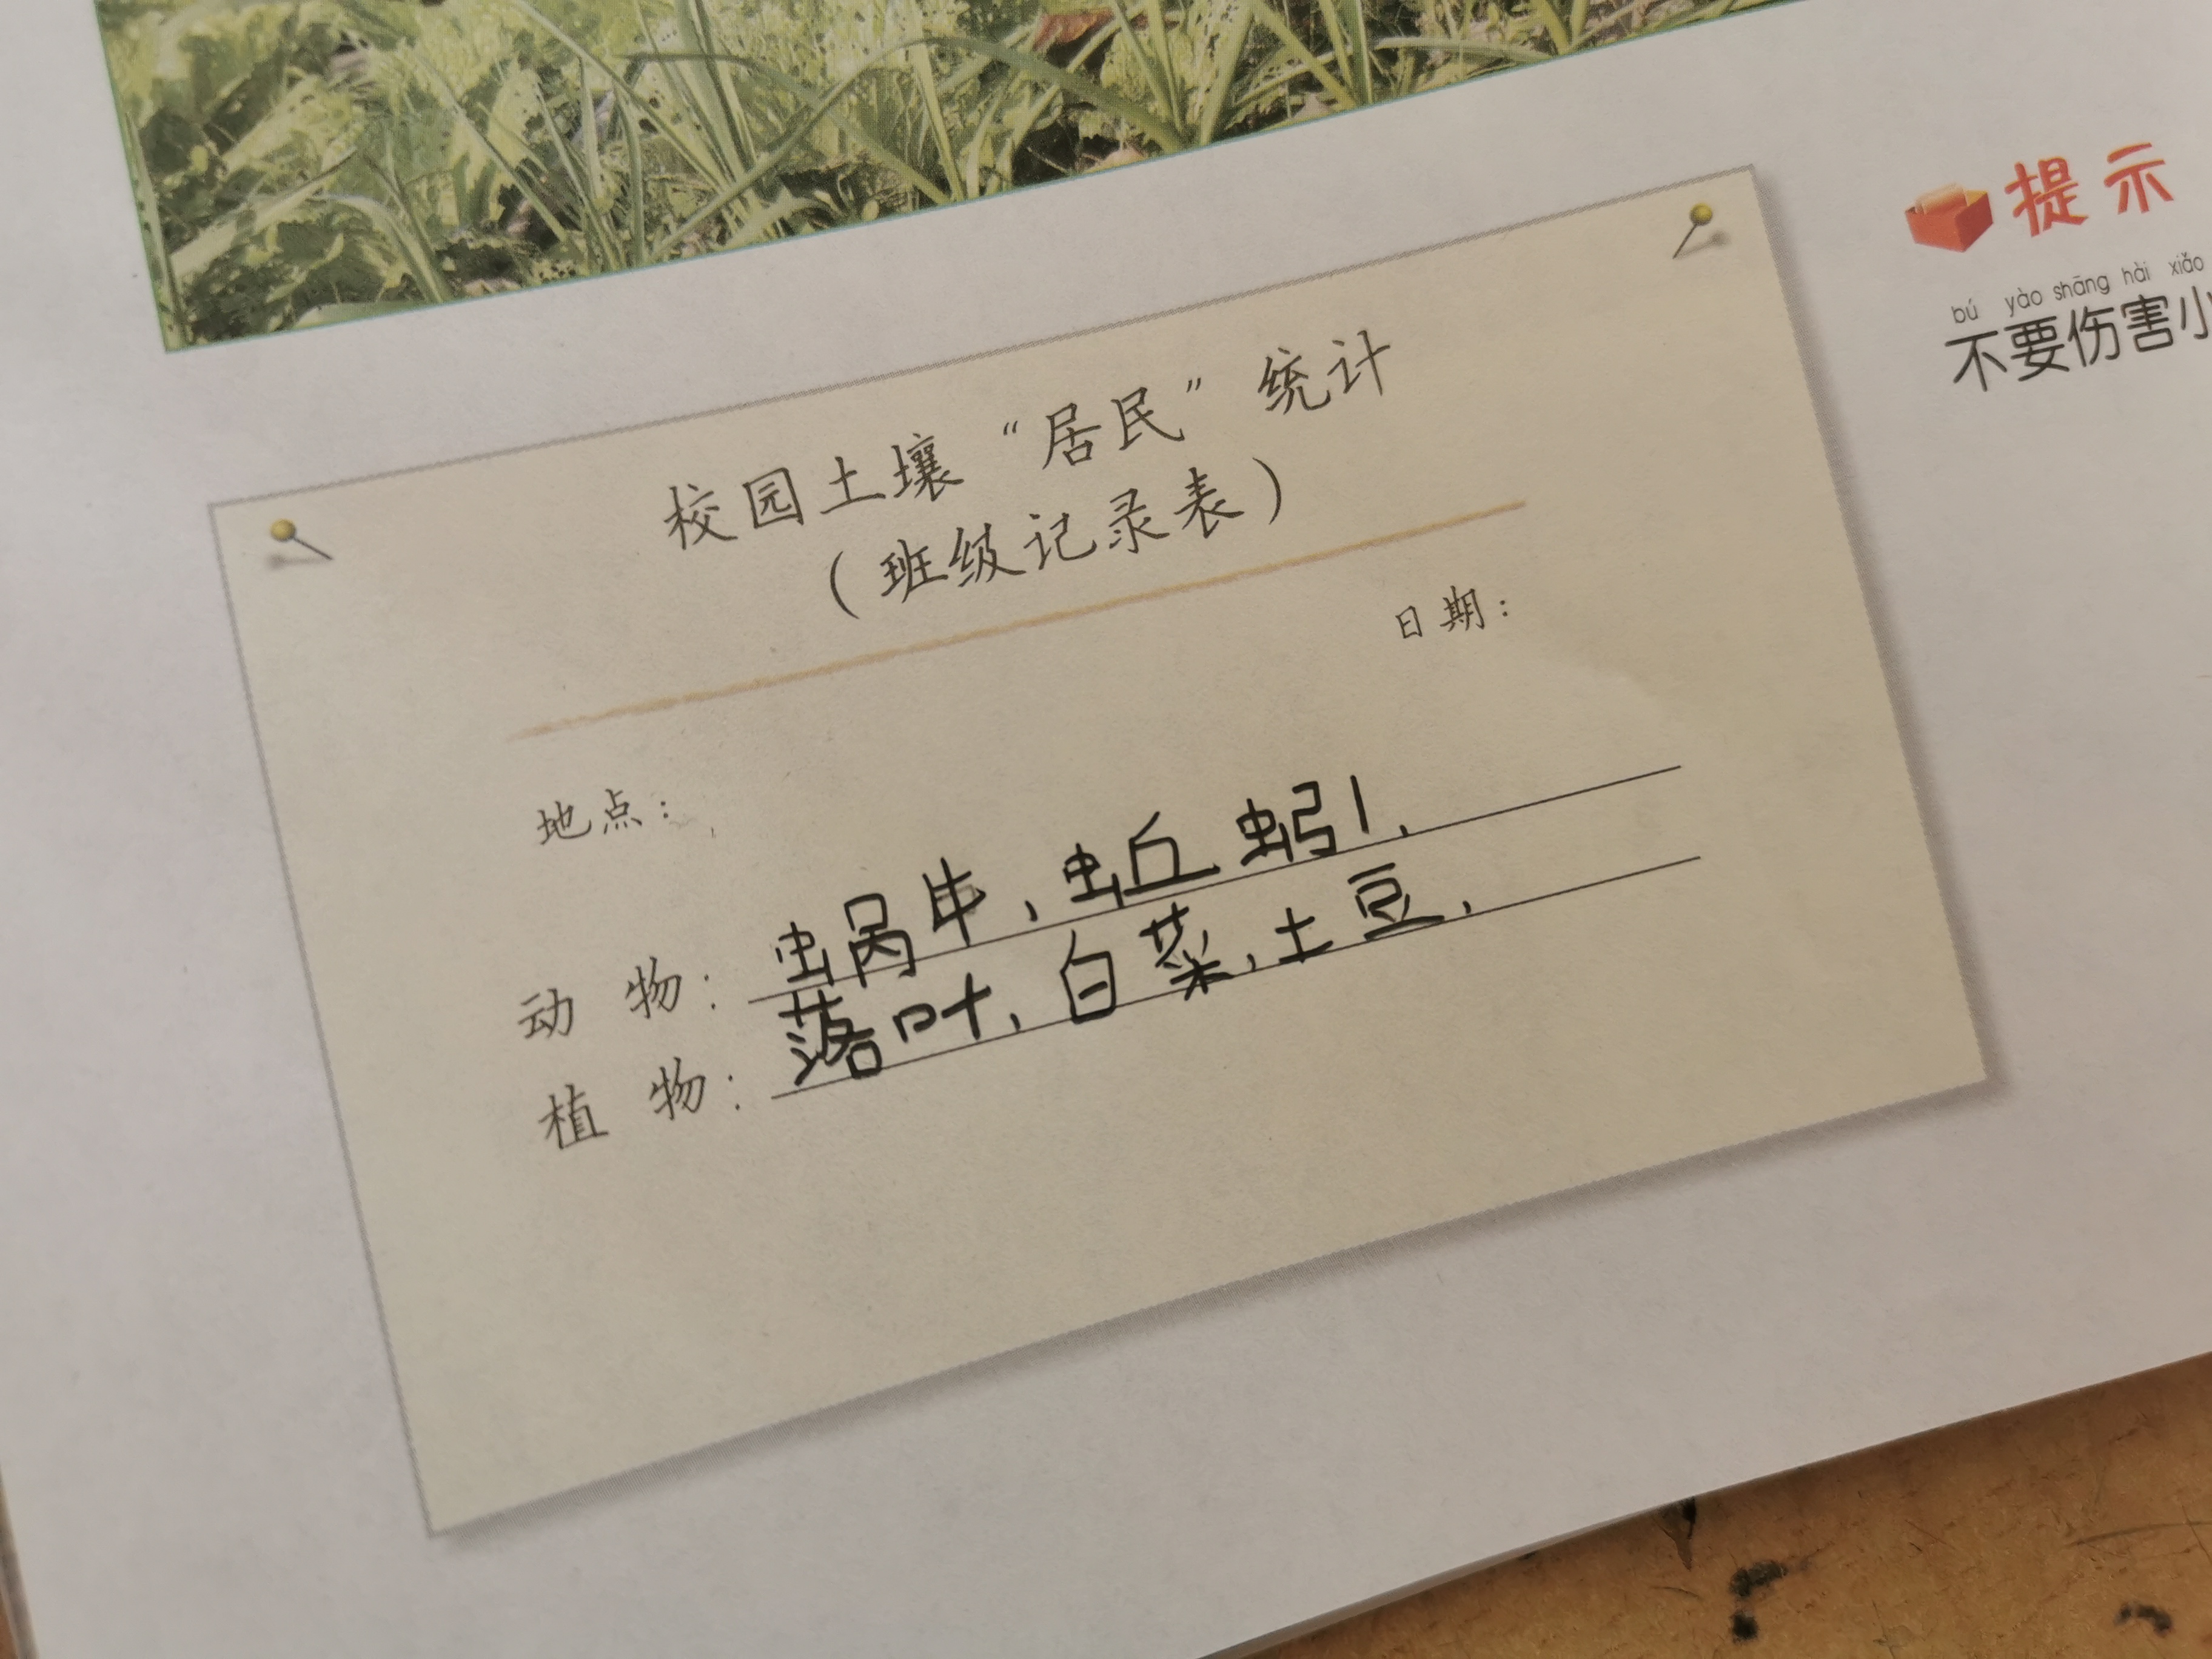 提示
bú yào shāng hài xiǎo
不要伤害小
校园土壤“居民”统计
（班级记录表）
日期：
地点：
动 物：蜗牛、蚯蚓、
植 物：落叶、白菜、土豆、